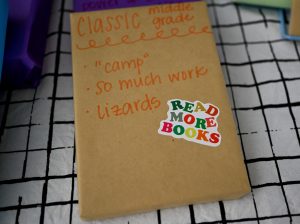 Classic middle
grade
• "camp"
• so much work
• Lizards
READ
MORE
BOOKS